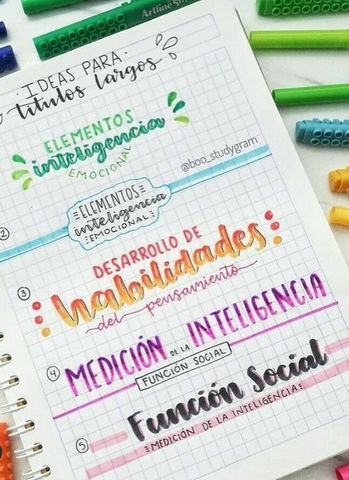 Artline
·IDEAS PARA·
títulos largos
ELEMENTOS
inteligencia
EMOCIONAL
@boo_studygram
2
ELEMENTOS
inteligencia
EMOCIONAL
3
DESARROLLO DE
habilidades
del pensamiento
4
MEDICIÓN DE LA INTELIGENCIA
FUNCIÓN SOCIAL
5
Función Social
MEDICIÓN DE LA INTELIGENCIA